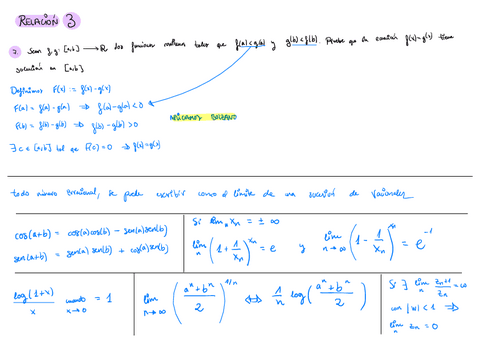 RELACIÓN 3
7. Sean f, g: [a,b] → ℝ dos funciones continuas tales que f(a) < g(a) y g(b) < f(b). Pruebe que la ecuación f(x) = g(x) tiene
solución en [a,b]
Definimos F(x) := f(x) - g(x)
F(a) = f(a) - g(a) ⇒ f(a) - g(a) < 0
F(b) = f(b) - g(b) ⇒ f(b) - g(b) > 0
APLICAMOS BOLZANO
∃ c ∈ [a,b] tal que F(c) = 0 ⇒ f(x) = g(x)
todo número irracional, se puede escribir como el límite de una sucesión de racionales
cos(a+b) = cos(a)cos(b) - sen(a)sen(b)
sen(a+b) = sen(a)sen(b) + cos(a)cos(b)
Si lim xₙ = ± ∞
lim n (1 + 1/xₙ)^xₙ = e y lim n→∞ (1 - 1/xₙ)^xₙ = e⁻¹
log(1+x)/x cuando x→0 = 1
lim n→∞ ((aⁿ + bⁿ)/2)^1/n ⇔ 1/n log((aⁿ + bⁿ)/2)
Si ∃ lim n zn+1/zn = ∞
con |x| < 1 ⇒
lim n zn = 0